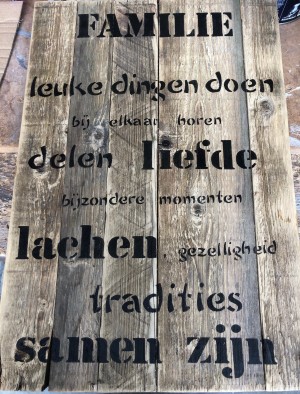 FAMILIE
leuke dingen doen
bij elkaar horen
delen liefde
bijzondere momenten
lachen, gezelligheid
tradities
samen zijn